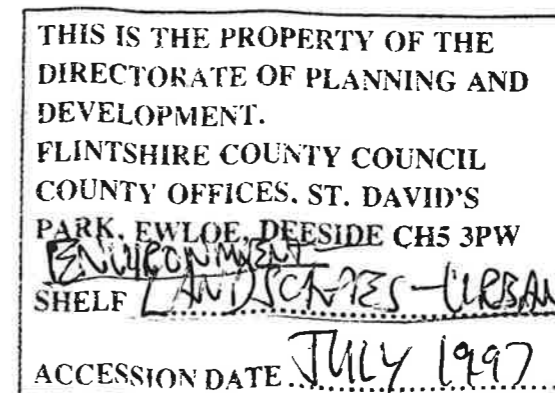 THIS IS THE PROPERTY OF THE
DIRECTORATE OF PLANNING AND
DEVELOPMENT.
FLINTSHIRE COUNTY COUNCIL
COUNTY OFFICES. ST. DAVID'S
PARK, EWLOE, DEESIDE CH5 3PW
ENVIRONMENT -
SHELF LANDSCAPES - URBAN
ACCESSION DATE JULY 1997